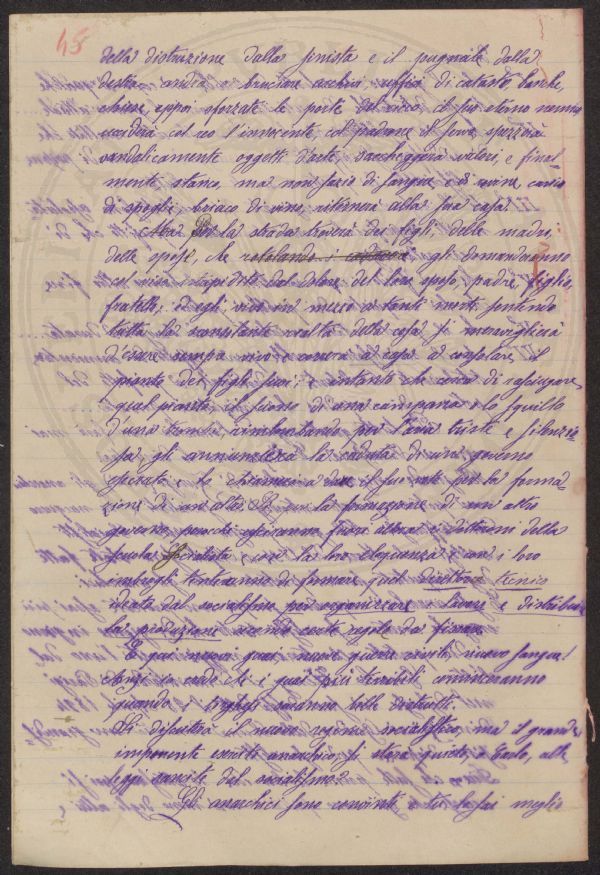 45
della distruzione dalla sinista e il pugnale dalla
destra andrà bruciare archivi, uffizi di catasto, banche,
chiese, eppoi sforzate le porte del ricco, il suo eterno nemico
ucciderà col reo l'innocente, col padrone il servo, spezzerà
vandalicamente oggetti d'arte, saccheggerà valori, e final-
mente stanco, ma non sazio di sangue e di rovine, carico
di spoglie, briaco di vino ritornerà alla sua casa
Ma Per la strada troverà dei figli, delle madri
delle spose, che gli domanderanno
col viso istupidito dal dolore del loro sposo, padre, figlio,
fratello; ed egli vivo in mezzo a tanti morti sentendo
tutta la realtà della cosa si meraviglierà
d'essere sempre vivo e correrà a casa a consolare il
pianto dei figli suoi; e intanto che cerca di rasciugare
quel pianto, il suono di una campana o lo squillo
d'una tromba, rimbombando per l'aria triste e silenzio-
sa gli annunzierà la caduta di un governo
e lo chiamerà a dare il suo voto per la forma-
zione di un altro. la formazione di un altro
governo, perché usciranno fuora allora i dottrini della
scuola Socialista, con la loro eloquenza e con i loro
imbrogli tenteranno di formare quel direttorio tecnico
ideato dal socialismo per organizzare il lavoro e distribuire
la produzione secondo certe regole da fissare.
E qui nuovi guai, nuove guerre civili, nuovo sangue!
Anzi io credo che i guai più terribili cominceranno
quando i borghesi saranno belle distrutti.
Si discuterà il nuovo regime socialistico, ma il grande
imponente esercito anarchico, si starà quieto, o Carlo, alle
leggi sancite del socialismo?
Gli anarchici sono convinti e tu lo sai meglio